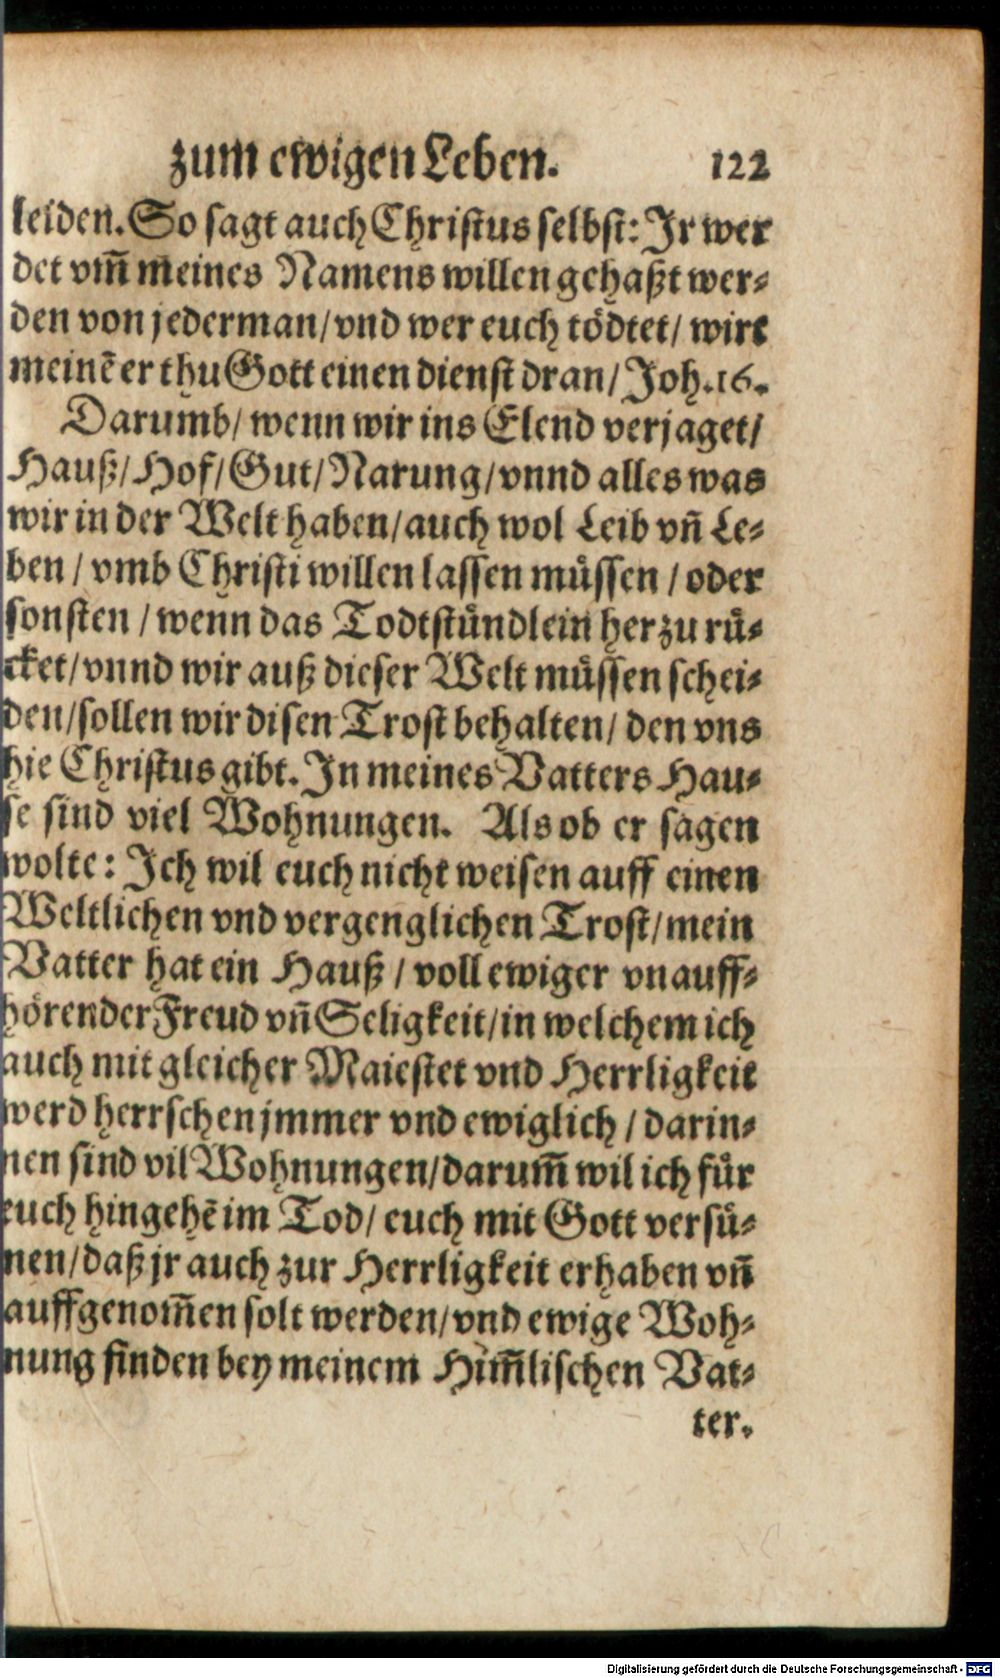 zum ewigen Leben. 122
leiden. So sagt auch Christus selbst: Ir wer
det vm̃ meines Namens willen gehaßt wer-
den von jederman/ vnd wer euch tödtet/ wirt
meinẽ er thu Gott einen dienst dran/ Joh. 16.
Darumb/ wenn wir ins Elend verjaget/
Hauß/ Hof/ Gut/ Narung/ vnnd alles was
wir in der Welt haben/ auch wol Leib vñ Le-
ben/ vmb Christi willen lassen müssen/ oder
sonsten/ wenn das Todtstündlein herzu rü-
cket/ vnnd wir auß dieser Welt müssen schei-
den/ sollen wir disen Trost behalten/ den vns
hie Christus gibt. In meines Vatters Hau-
se sind viel Wohnungen. Als ob er sagen
wolte: Ich wil euch nicht weisen auff einen
Weltlichen vnd vergenglichen Trost/ mein
Vatter hat ein Hauß/ voll ewiger vnauff-
hörender Freud vñ Seligkeit/ in welchem ich
auch mit gleicher Maiestet vnd Herrligkeit
werd herrschen jmmer vnd ewiglich/ darin-
nen sind vil Wohnungen/ darum̃ wil ich für
euch hingehẽ im Tod/ euch mit Gott versü-
nen/ daß jr auch zur Herrligkeit erhaben vñ
auffgenom̃en solt werden/ vnd ewige Woh-
nung finden bey meinem Him̃lischen Vat-
ter.
Digitalisierung gefördert durch die Deutsche Forschungsgemeinschaft - DFG